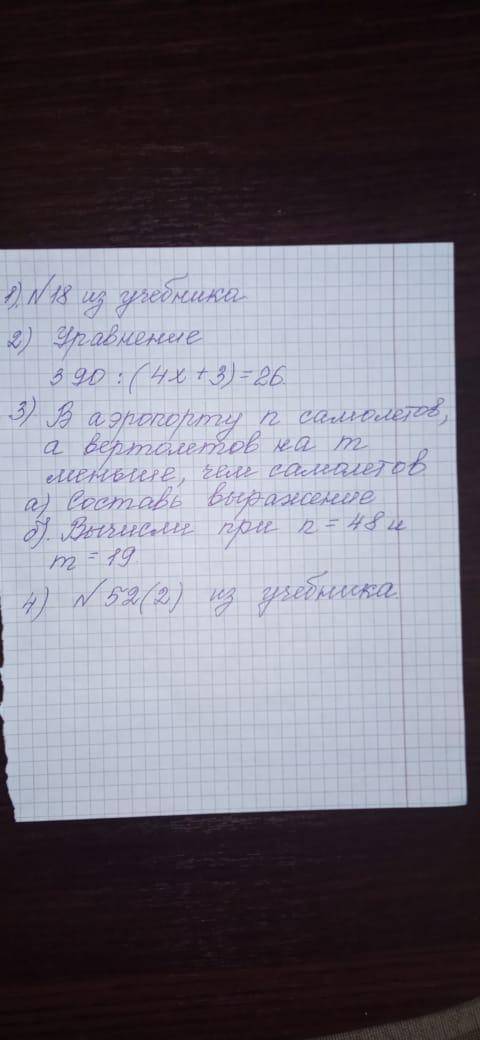 1). №18 из учебника
2) Уравнение
390 : (4x + 3) = 26.
3) В аэропорту n самолетов,
а вертолетов на m
меньше, чем самолетов.
а) Составь выражение
б). Вычисли при n = 48 и
m = 19.
4) №52(2) из учебника.